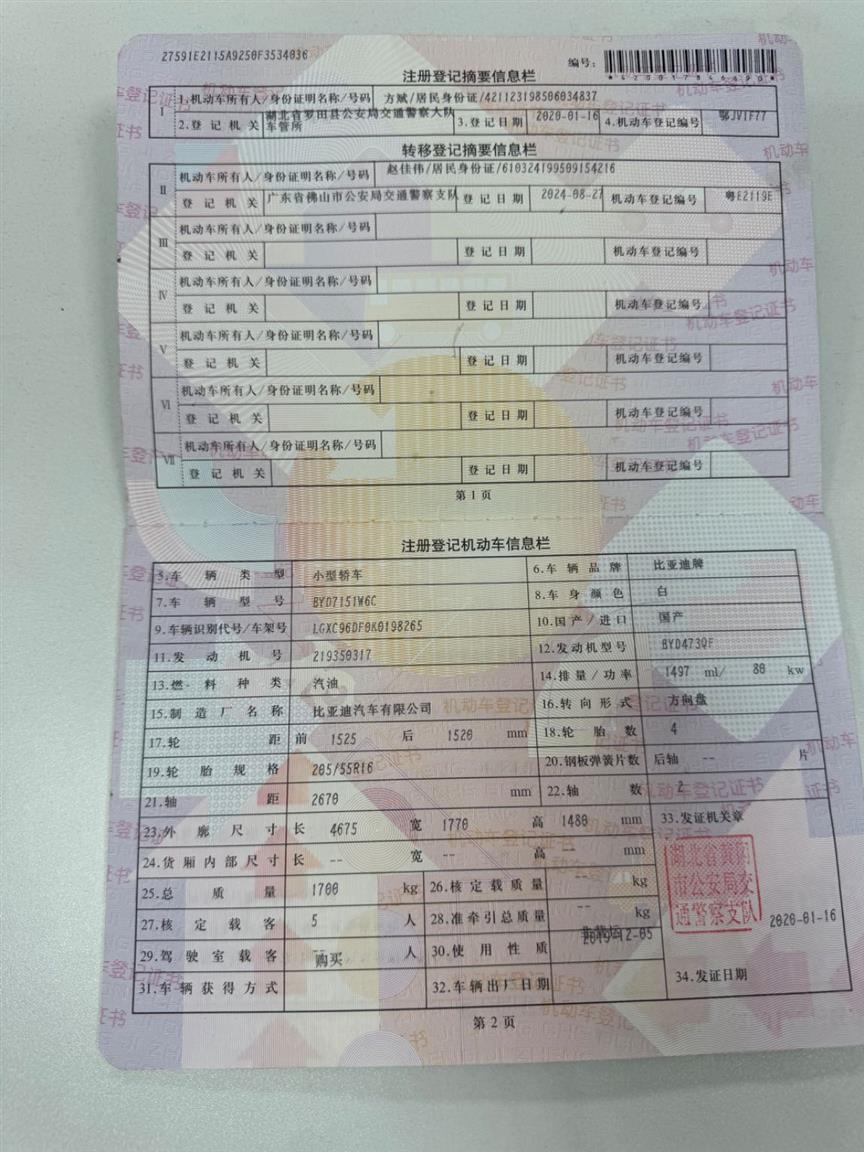 27591E2115A9250F3534036
编号:
注册登记摘要信息栏
I
1.机动车所有人/身份证明名称/号码 方斌/居民身份证/421123198506034837
2.登记机关 湖北省罗田县公安局交通警察大队车管所 3.登记日期 2020-01-16 4.机动车登记编号 鄂JV1F77
转移登记摘要信息栏
II
机动车所有人/身份证明名称/号码 赵佳伟/居民身份证/610324199509154216
登记机关 广东省佛山市公安局交通警察支队 登记日期 2024-08-27 机动车登记编号 粤E2119E
III
机动车所有人/身份证明名称/号码
登记机关 登记日期 机动车登记编号
IV
机动车所有人/身份证明名称/号码
登记机关 登记日期 机动车登记编号
V
机动车所有人/身份证明名称/号码
登记机关 登记日期 机动车登记编号
VI
机动车所有人/身份证明名称/号码
登记机关 登记日期 机动车登记编号
VII
机动车所有人/身份证明名称/号码
登记机关 登记日期 机动车登记编号
第1页
注册登记机动车信息栏
5.车辆类型 小型轿车 6.车辆品牌 比亚迪牌
7.车辆型号 BYD7151W6C 8.车身颜色 白
9.车辆识别代号/车架号 LGXC96DF0K0198265 10.国产/进口 国产
11.发动机号 219350317 12.发动机型号 BYD473QF
13.燃料种类 汽油 14.排量/功率 1497 ml/ 80 kw
15.制造厂名称 比亚迪汽车有限公司 16.转向形式 方向盘
17.轮距 前 1525 后 1520 mm 18.轮胎数 4
19.轮胎规格 205/55R16 20.钢板弹簧片数 后轴 -- 片
21.轴距 2670 mm 22.轴数 2
23.外廓尺寸 长 4675 宽 1770 高 1480 mm 33.发证机关章
24.货厢内部尺寸 长 -- 宽 -- 高 -- mm
湖北省黄冈市公安局交通警察支队
25.总质量 1700 kg 26.核定载质量 -- kg
27.核定载客 5 人 28.准牵引总质量 -- kg 2020-01-16
29.驾驶室载客 -- 人 30.使用性质 非营运
31.车辆获得方式 购买 32.车辆出厂日期 2019-12-05 34.发证日期
第2页